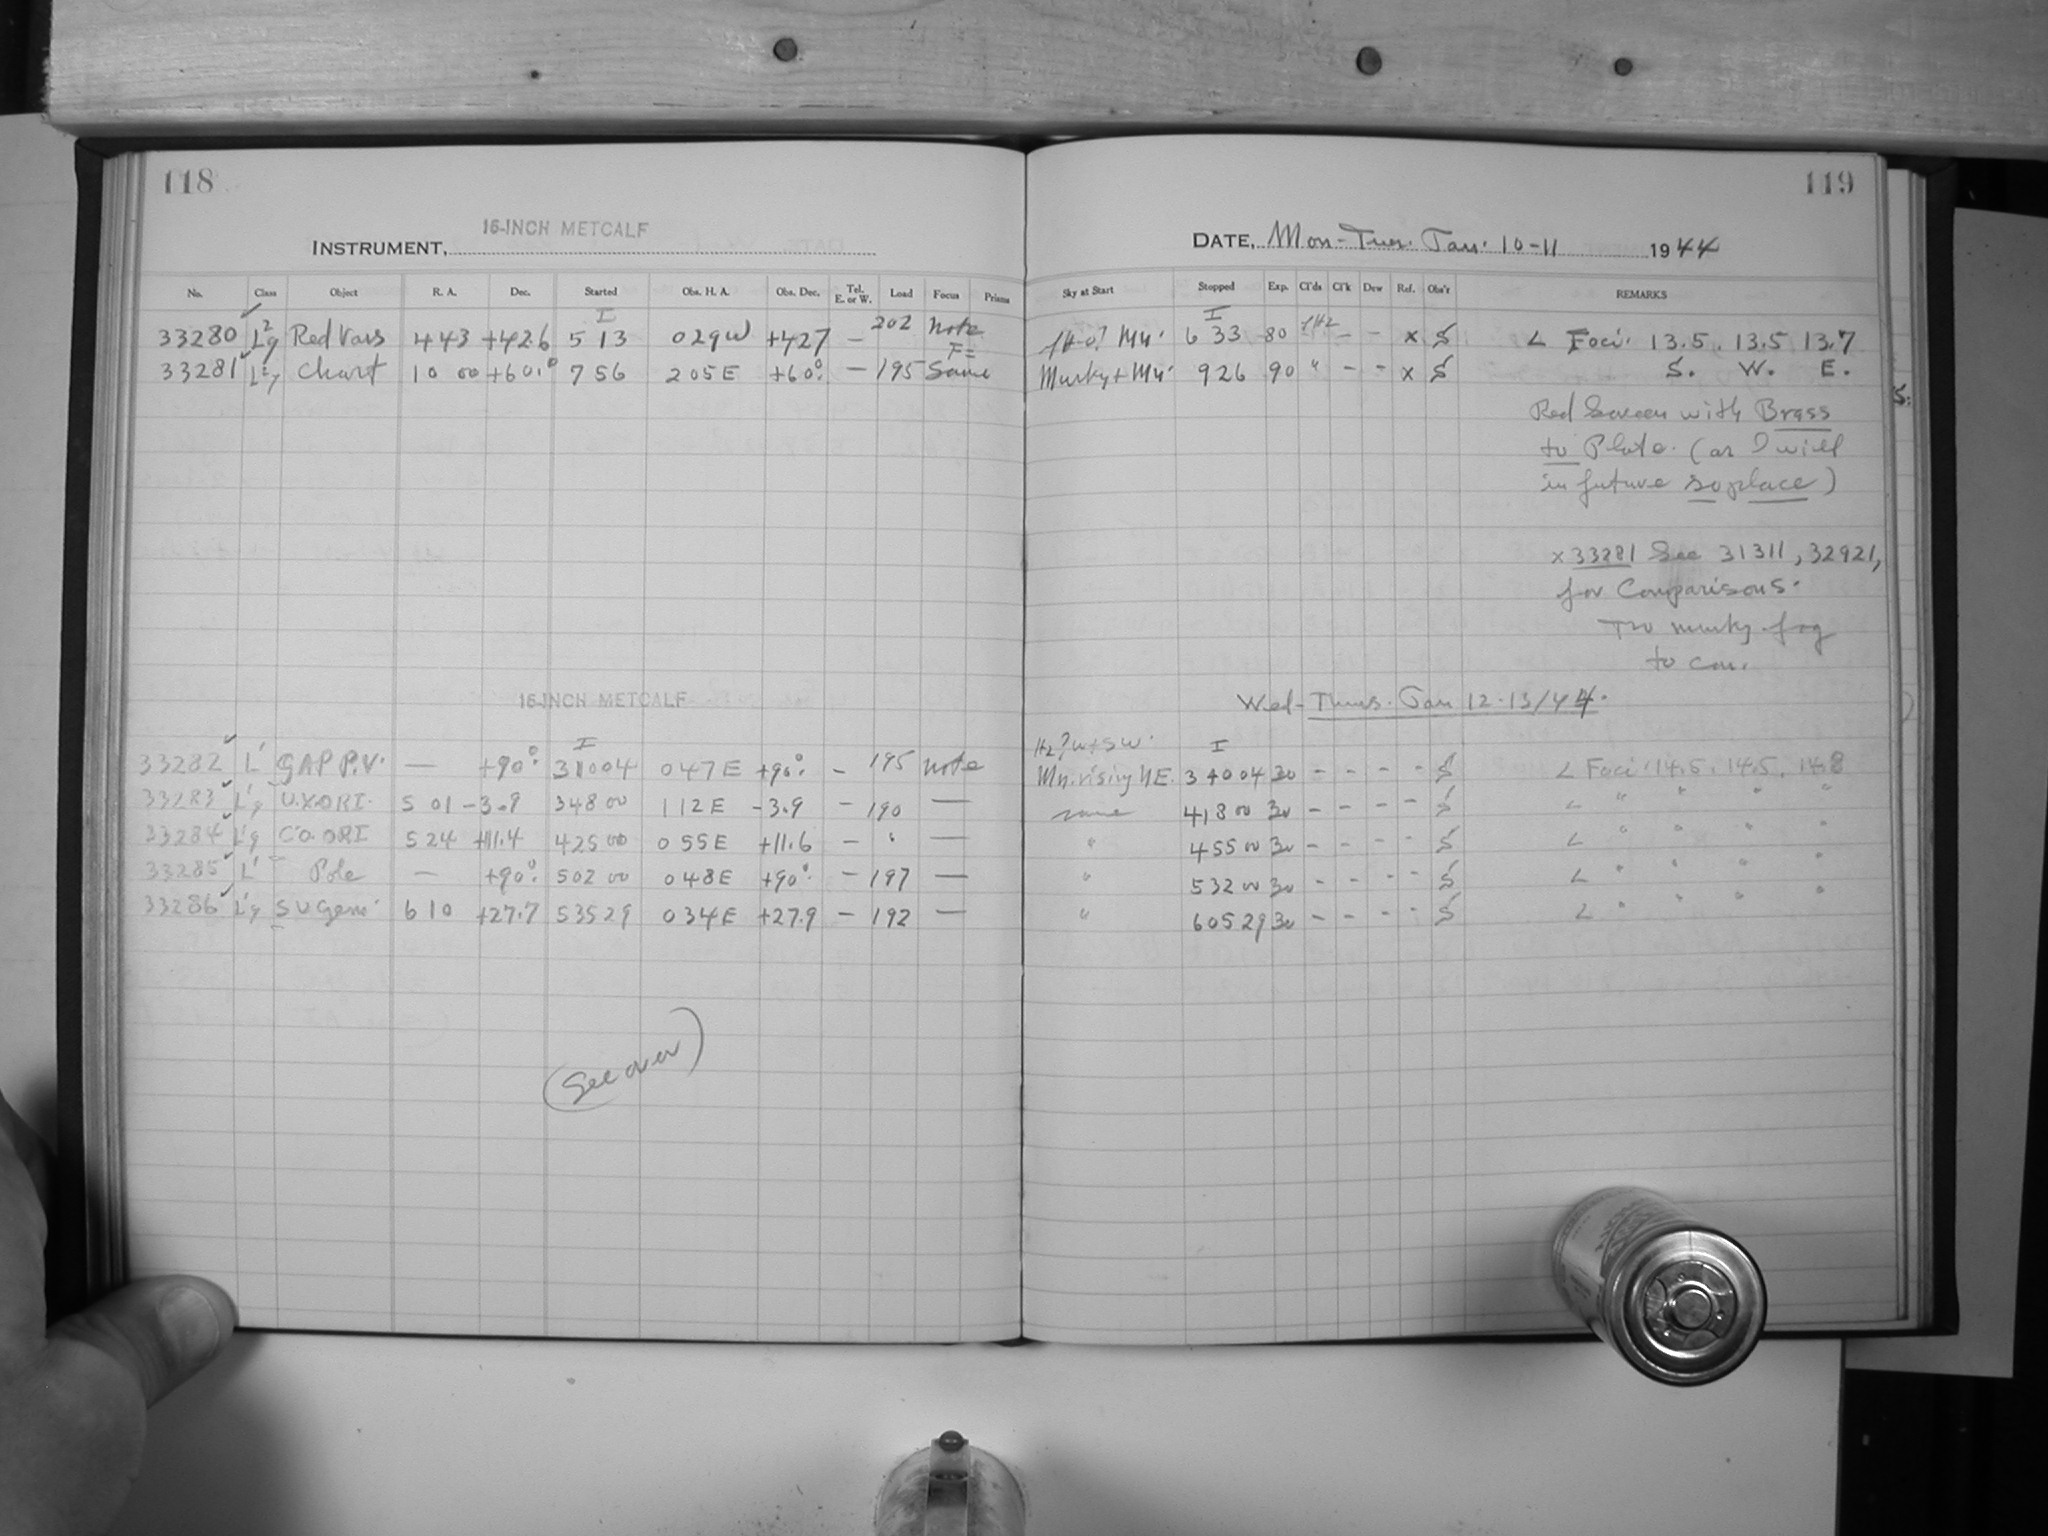 118
16-INCH METCALF
INSTRUMENT,
No. Class Object R. A. Dec. Started Obs. H. A. Obs. Dec. Tel. E. or W. Load Focus Prisms
33280 L2g Red Vars 4 43 +42.6 5 13 0 29 W +42.7 — 202 Note
33281 L2g Chart 10 00 +60.0 7 56 2 05 E +60° — 195 F= Same
16-INCH METCALF
33282 L' GAP P.V. — +90° 3 10 04 0 47 E +90° — 195 note
33283 L'g UX ORI. 5 01 -3.9 3 48 00 1 12 E -3.9 — 190 —
33284 L'g CO. ORI 5 24 +11.4 4 25 00 0 55 E +11.6 — " —
33285 L' Pole — +90° 5 02 00 0 48 E +90° — 197 —
33286 L'g SU Gem. 6 10 +27.7 5 35 29 0 34 E +27.9 — 192 —
(See over)
119
DATE, Mon-Tues. Jan. 10-11 1944
Sky at Start Stopped Exp. Cl'ds Cl'k Dew Ref. Obs'r REMARKS
6 33 80 — — x S L Foci. 13.5. 13.5 13.7
Murky + Mn. 9 26 90 " — — x S S. W. E.
Red Screen with Brass
to Plate. (as I will
in future so place)
x 33281 See 31311, 32921,
for Comparisons.
Too murky fog
to con.
Wed-Thurs. Jan 12-13/44.
Hz? W+SW.
Mn. rising NE. 3 40 04 30 — — — — S L Foci. 14.5. 14.5. 14.8
same 4 18 00 30 — — — — S L " " " "
" 4 55 00 30 — — — — S L " " " "
" 5 32 00 30 — — — — S L " " " "
" 6 05 29 30 — — — — S L " " " "